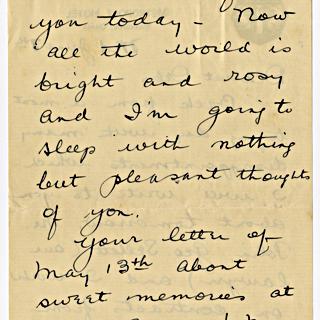 you today - Now
all the world is
bright and rosy
and I'm going to
sleep with nothing
but pleasant thoughts
of you.
Your letter of
May 13th about
sweet memories at